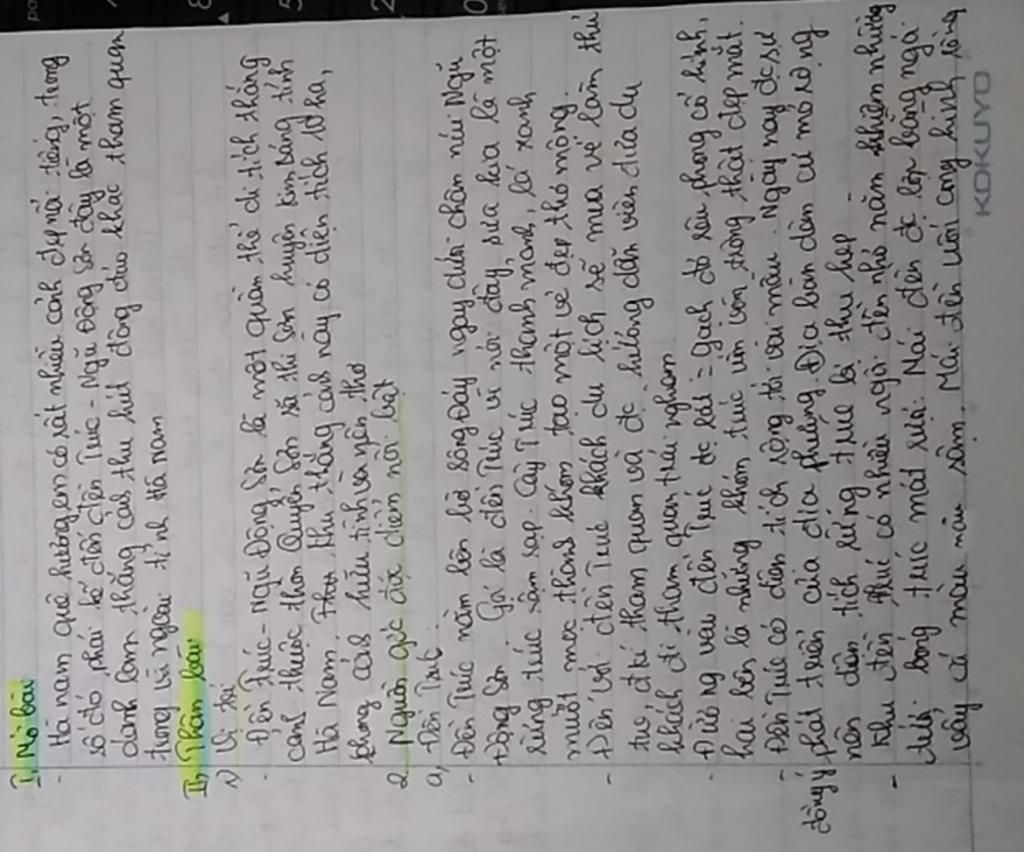 I, Mở bài
- Hà nam quê hương em có rất nhiều cảnh đẹp nổi tiếng, trong
số đó phải kể đến đền Trúc - Ngũ Động Sơn đây là một
danh lam thắng cảnh thu hút đông đảo khác tham quan
trong và ngoài tỉnh Hà Nam
II, Thân bài
1) Vị trí
- Đền trúc - Ngũ Động Sơn là một quần thể di tích thắng
cảnh thuộc thôn Quyển Sơn xã thi Sơn huyện kim bảng tỉnh
Hà Nam. khu thắng cảnh này có diện tích 10 ha,
không cảnh hữu tình và nên thơ
2. Nguồn gốc đặc điểm nổi bật
a, Đền Trúc
- Đền Trúc nằm bên bờ sông Đáy ngay dưới chân núi Ngũ
Động Sơn. Gọi là đền Trúc vì nơi đây xưa kia là một
rừng trúc rậm rạp. Cây Trúc thanh mảnh, lá xanh
mướt mọc thành khóm tạo một vẻ đẹp thơ mộng.
- Đến với đền Trúc khách du lịch sẽ mua vé làm thủ
tục, để tham quan và đc hướng dẫn viên đưa du
khách đi tham quan trải nghiệm
- Đường vào đền Trúc đc lát = gạch đỏ sâu phong cổ kính,
hai bên là những khóm trúc uốn vòn trông thật đẹp mắt.
- Đền Trúc có diện tích rộng tới vài mẫu. Ngày nay đc sự
đồng ý phát triển của địa phương. Địa bàn dân cư mở rộng
nên diện tích rừng trúc bị thu hẹp
- Khu đền Trúc có nhiều ngôi đền nhỏ nằm khiêm nhường
dưới bóng trúc mát rượi. Mái đền đc lợp bằng ngói
vẩy cá màu nâu sậm. Mái đền uốn cong hình rồng
KOKUYO